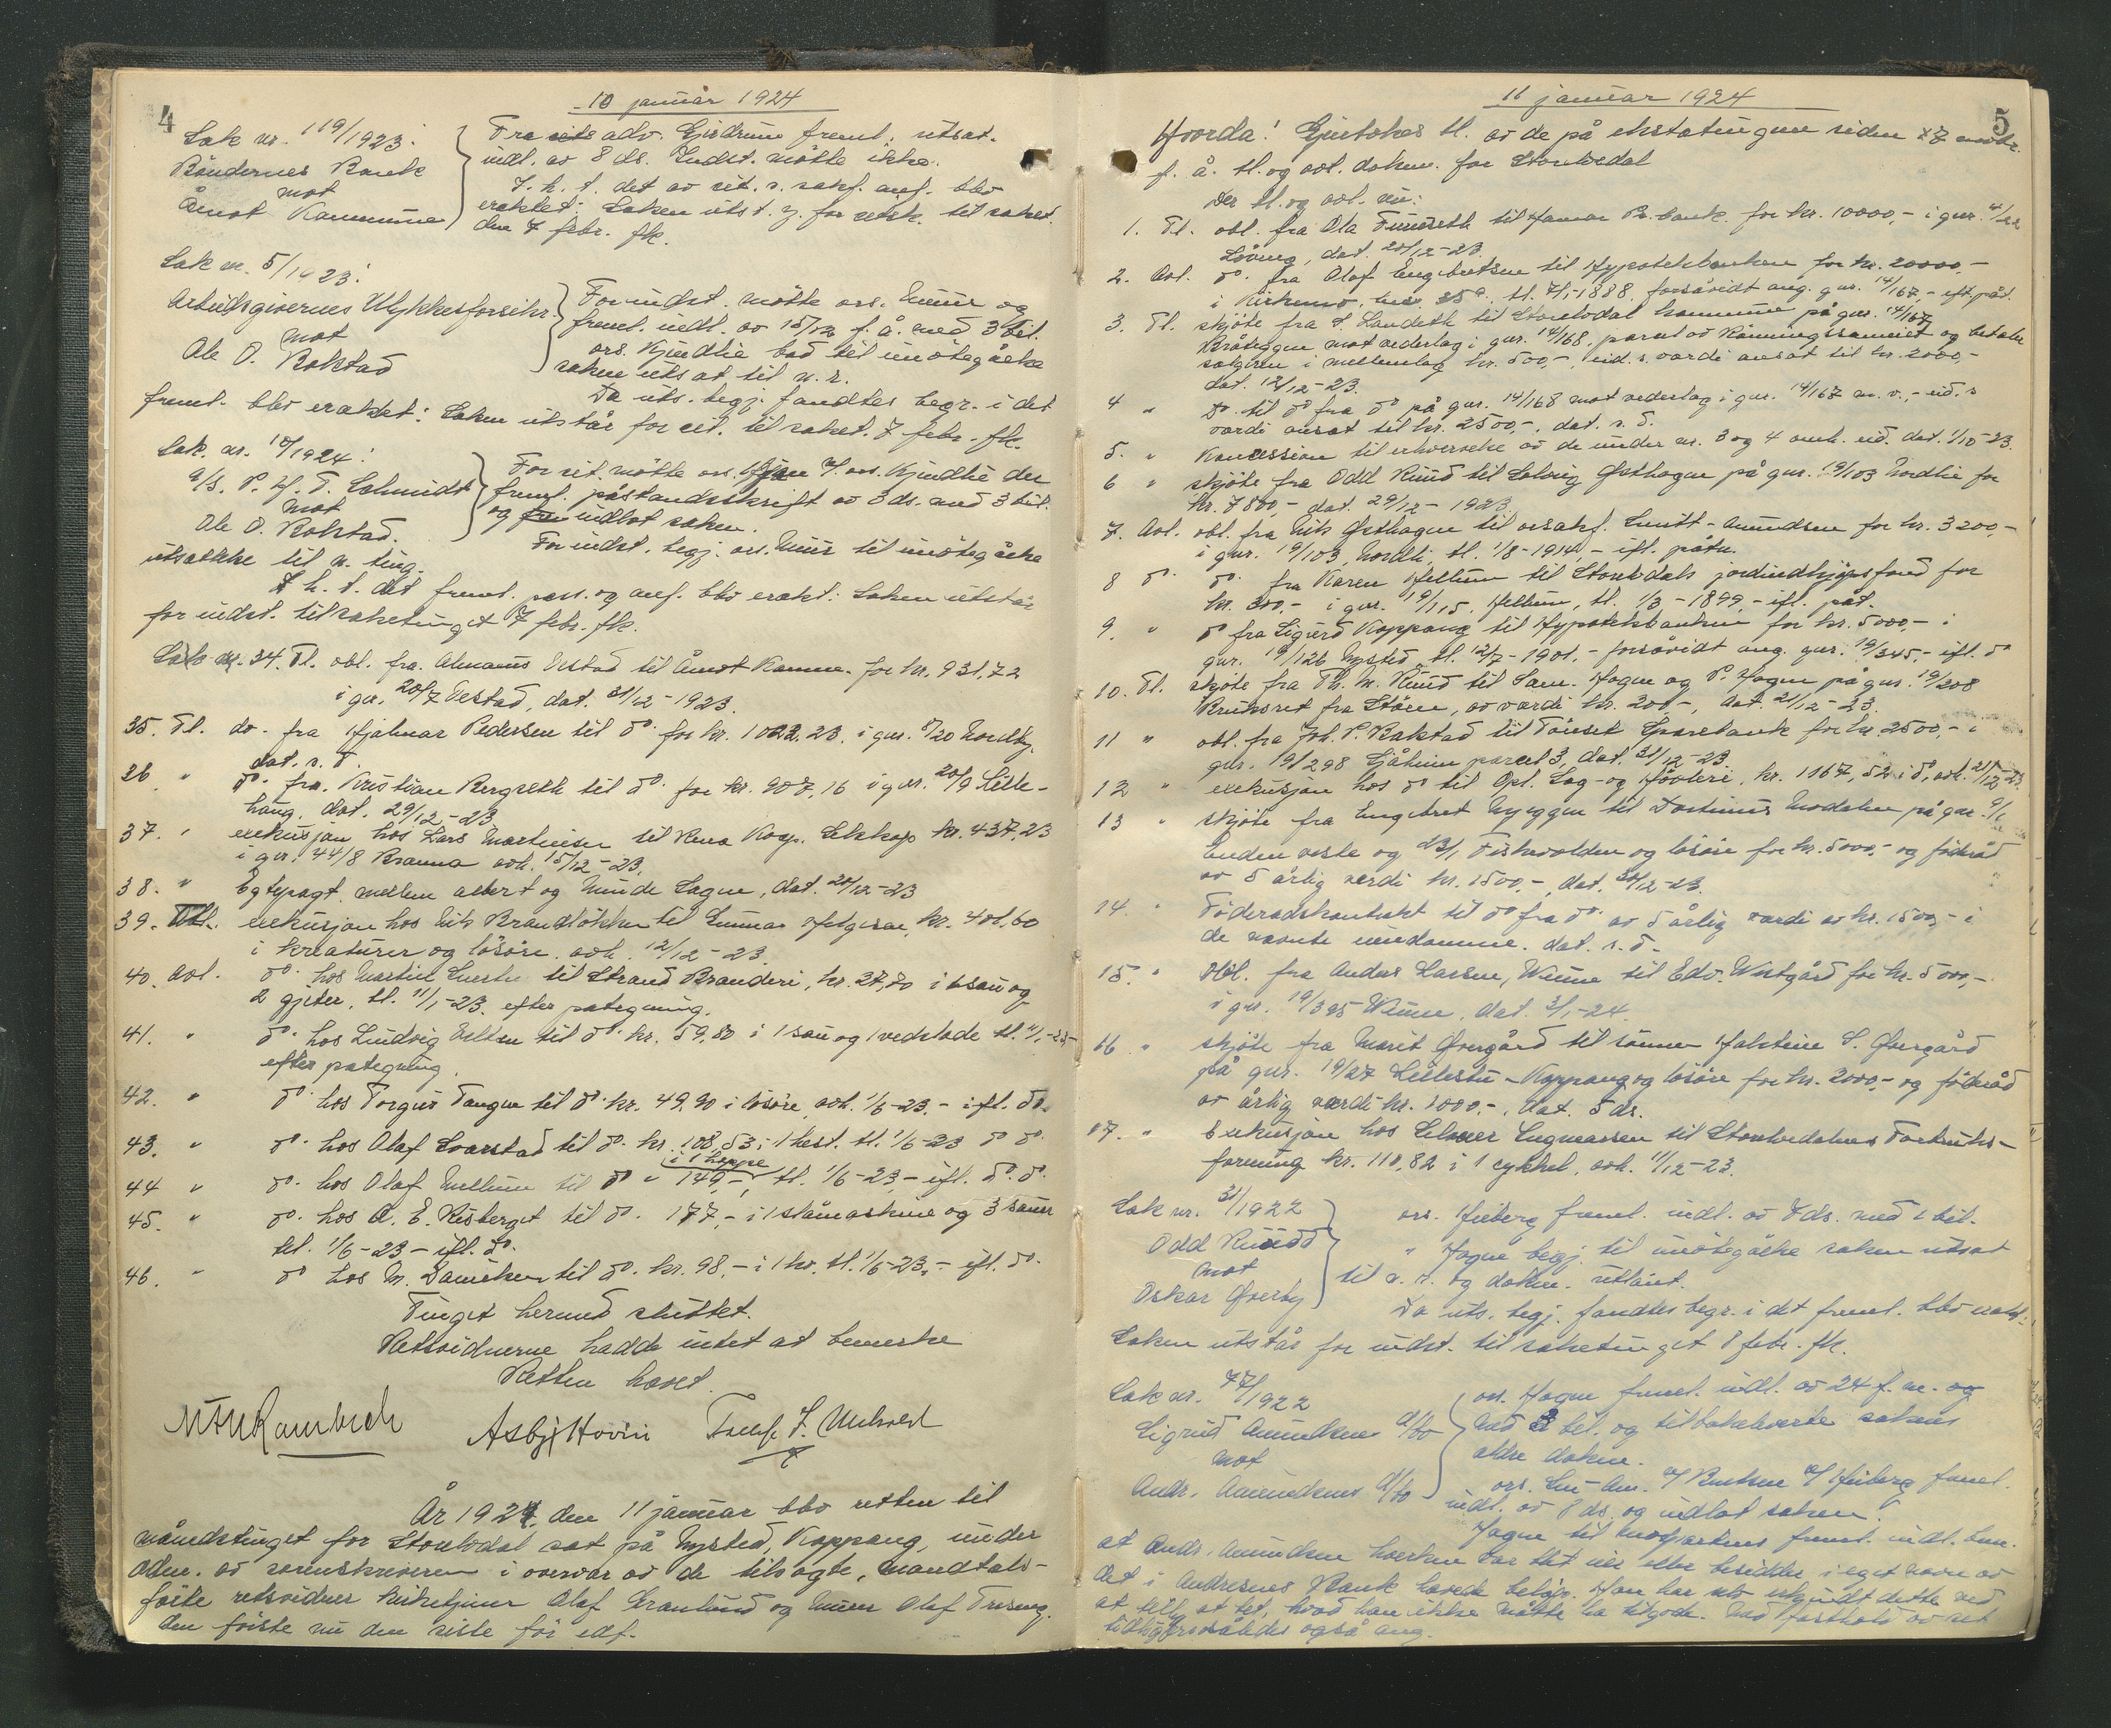 4
10 januar 1924
Sak nr. 119/1923:
Böndernes Bank
mot
Åmot Kommune
adv. Gjedrum freml. utsat.
indl. av 8 ds. Indst. mötte ikke.
T. h. t. det av sit. s. sakf. anf. blev
eraktet: Saken utst. for retsk. til saket.
den 7 febr. fk.
Sak nr. 5/1923:
Arbeidsgivernes Ulykkesforsikr.
mot
Ole O. Rokstad
For indst. mötte ors. Muus og
freml. indl. av 15/12 f. å. med 3 bil.
ors. Kjendlie bad til imötegåelse
saken utsat til n. r.
Da uts. begj. fandtes begr. i det
freml. blev eraktet: Saken utstår for cit. til saket. 7 febr. fk.
Sak nr. 10/1924:
A/S. P. H. T. Schmidt
mot
Ole O. Rokstad.
For cit. mötte ors. f. ors. Kjendlie der
freml. påstandsskrift av 3 ds. med 3 bil.
og indlot saken.
For indst. begj. ors. Muus til imötegåelse
utsættelse til n. ting.
T. h. t. det freml. pass. og anf. blev erakt: Saken utstår
for indst. til saketinget 7 febr. fk.
nr. 34. Tl. obl. fra Vestad til Åmot Komm. for kr. 931,72
i gnr. 20/7 Vestad, dat. 31/12-1923.
35. Tl. do. fra Hjalmar Pedersen til do. for kr. 1022.23. i gnr. 8/20 Nordby,
dat. s. d.
36 " do. fra Kristian Bergseth til do. for kr. 907,16 i gnr. 20/9 Lille-
haug, dat. 29/12-23
37. " exekusjon hos Lars Martinsen til Rena Kop. Selskap kr. 437.23
i gnr. 44/8 Branna avh. 15/12-23.
38. " Egtepagt mellem Albert og Minde Sagen, dat. 20/12-23
39. exekusjon hos Nils Brandlökken til Gunnar Helgesen, kr. 401,60
i kreaturer og lösöre. avh. 12/12-23.
40. Avl. do. hos Martin til Strand Brænderi, kr. 27,70 i 6 sau og
2 gjeter, tl. 11/1-23. efter påtegning.
41. " do. hos Ludvig til do. kr. 59,80 i 1 sau og 1 vedslæde tl. 11/1-23-
efter påtegning.
42. " do. hos Torgus Tangen til do. kr. 49.90 i lösöre, avh. 1/6-23.- ifl. do.
43. " do. hos Olaf Svarstad til do. kr. 108,53 i 1 hest. tl. 1/6-23 do do.
44 " do. hos Olaf Mellum til do " 149,-, i 1 hoppe tl. 1/6-23,- ifl. do. do.
45. " do. hos A. E. Risberget til do. 177,- i 1 slåmaskine og 3 sauer
tl. 1/6-23- ifl. do.
46. " do hos M. Danielsen til do. kr. 98,- i 1 ko. tl. 1/6-23.- ifl. do.
Tinget hermed sluttet.
Retsvidnerne hadde intet at bemerke
Retten hævet.
Asbj. Hovin
År 1924, den 11 januar blev retten til
månedstinget for Storelvdal sat på Nysted, Koppang, under
adm. av sorenskriveren i overvær av de tilsagte, mandtals-
förte retsvidner kirketjener Olaf Granlund og murer Olaf
den förste nu den siste för edf.
11 januar 1924
5
Hvorda! Gjentokes tl. av de på ekstratingene siden 27 novbr.
f. å. tl. og avl. dokum. for Storelvdal
Der tl. og avl. nu:
1. Tl. obl. fra Ola Furuseth til Hamar Pr. bank. for kr. 10000,- i gnr.
dat. 20/12-23.
2. Avl. do. fra Olaf Engebretsen til Hypotekbanken for kr. 20000,-
i tl. 7/1-1888, forsåvidt ang. gnr. 14/167,- eft. påt.
3. Tl. skjöte fra S. Landeth til Storelvdal kommune på gnr. 14/167
mot vederlag i gnr. 14/168, parcel av og betaler
selgeren i mellemlag kr. 500,-, eid. s. værdi ansat til kr. 2000,-
dat. 12/12-23.
4 " Do. til do fra do på gnr. 14/168 mot vederlag i gnr. 14/167 m. v.,- eid. s
værdi ansat til kr. 2500,-, dat. s. d.
5. " Konsession til erhvervelse av de under nr. 3 og 4 omh. eid. dat. 1/10-23.
6 " skjöte fra Odd Ruud til Solveig Östhagen på gnr. 19/103 Nordlie for
kr. 7800,- dat. 29/12-1923.
7. Avl. obl. fra Nils Östhagen til orsakf. Smitt-Amundsen for kr. 3200,-
i gnr. 19/103, Nordli, tl. 1/8-1914,- ifl. påtn.
8 do. do. fra Karen Hellum til Storelvdals jordindkjöpsfond for
kr. 300,- i gnr. 19/115, Hellum, tl. 1/3-1899,- ifl. påt.
9. " do fra Sigurd Koppang til Hypotekbanken for kr. 5000,- i
gnr. 19/126 Nysted, tl. 12/7-1901,- forsåvidt ang. gnr. 19/345,- ifl. do
10. Tl. skjöte fra Th. M. Ruud til Sam. Hagen og P. Hagen på gnr. 19/208
Bruksret fra Stören, av værdi kr. 200-, dat. 21/12-23.
11 " obl. fra Joh. P. Bakstad til Tönset Sparebank for kr. 2500,- i
gnr. 19/298 parcel 3, dat. 31/12-23.
12 " exekusjon hos do til Opl. Sag- og Høvleri, kr. 1167,52 i do, avh. 21/12-23.
13 " skjöte fra Engebret Nyeggen til Dortinus Modalen på gnr. 9/1
Enden veste og 23/1 Fiskevolden og lösöre for kr. 5000,- og föderåd
av 5 årlig værdi kr. 1500,-, dat. 30/12-23.
14. " Föderådskontrakt til do fra do. av 5 årlig værdi av kr. 1500,- i
de nævnte eiendomme. dat. s. d.
15. " Obl. fra Anders Larsen, Winne til Edv. Westgård for kr. 5000,-
i gnr. 19/395 Winne, dat. 3/1-24.
16 " skjöte fra Marit Övergård til sönnen Halstein S. Övergård
på gnr. 19/27 Lillestu-Koppang og lösöre for kr. 2000,- og föderåd
av årlig værdi kr. 1000,-, dat. 5 ds.
17. " Exekusjon hos Selmer Ingmarsen til Storelvedalens Forbruks-
forening kr. 110,82 i 1 cykkel, avh. 11/12-23.
Sak nr. 31/1922
Odd Ruud
mot
Oskar Överby
ors. Heiberg freml. indl. av 7 ds. med 1 bil.
" Hagen begj. til imötegåelse saken utsat
til n. r. og dokum. utlånt.
Da uts. begj. fandtes begr. i det freml. blev
Saken utstår for indst. til saketinget 8 febr. fk.
Sak nr. 77/1922
Sigrid Amundsens d/bo
mot
Andr. Amundsens d/bo
ors. Hagen freml. indl. av 24 f. m. og
med 2 bil. og tilbakeleverte sakens
ældre dokum.
ors. Sm-Am. v/ v/ Heiberg freml.
indl. av 8 ds. og indlot saken.
Hagen til motpartens freml. indl. bem.
at Andr. Amundsen hverken var det eller besidder i eget navn av
det i Andresens Bank hævede belöp. Han har selv erkjendt dette ved
at hvad han ikke måtte ha tilgode. Ved fastholdt av det
tidligere således også ang.